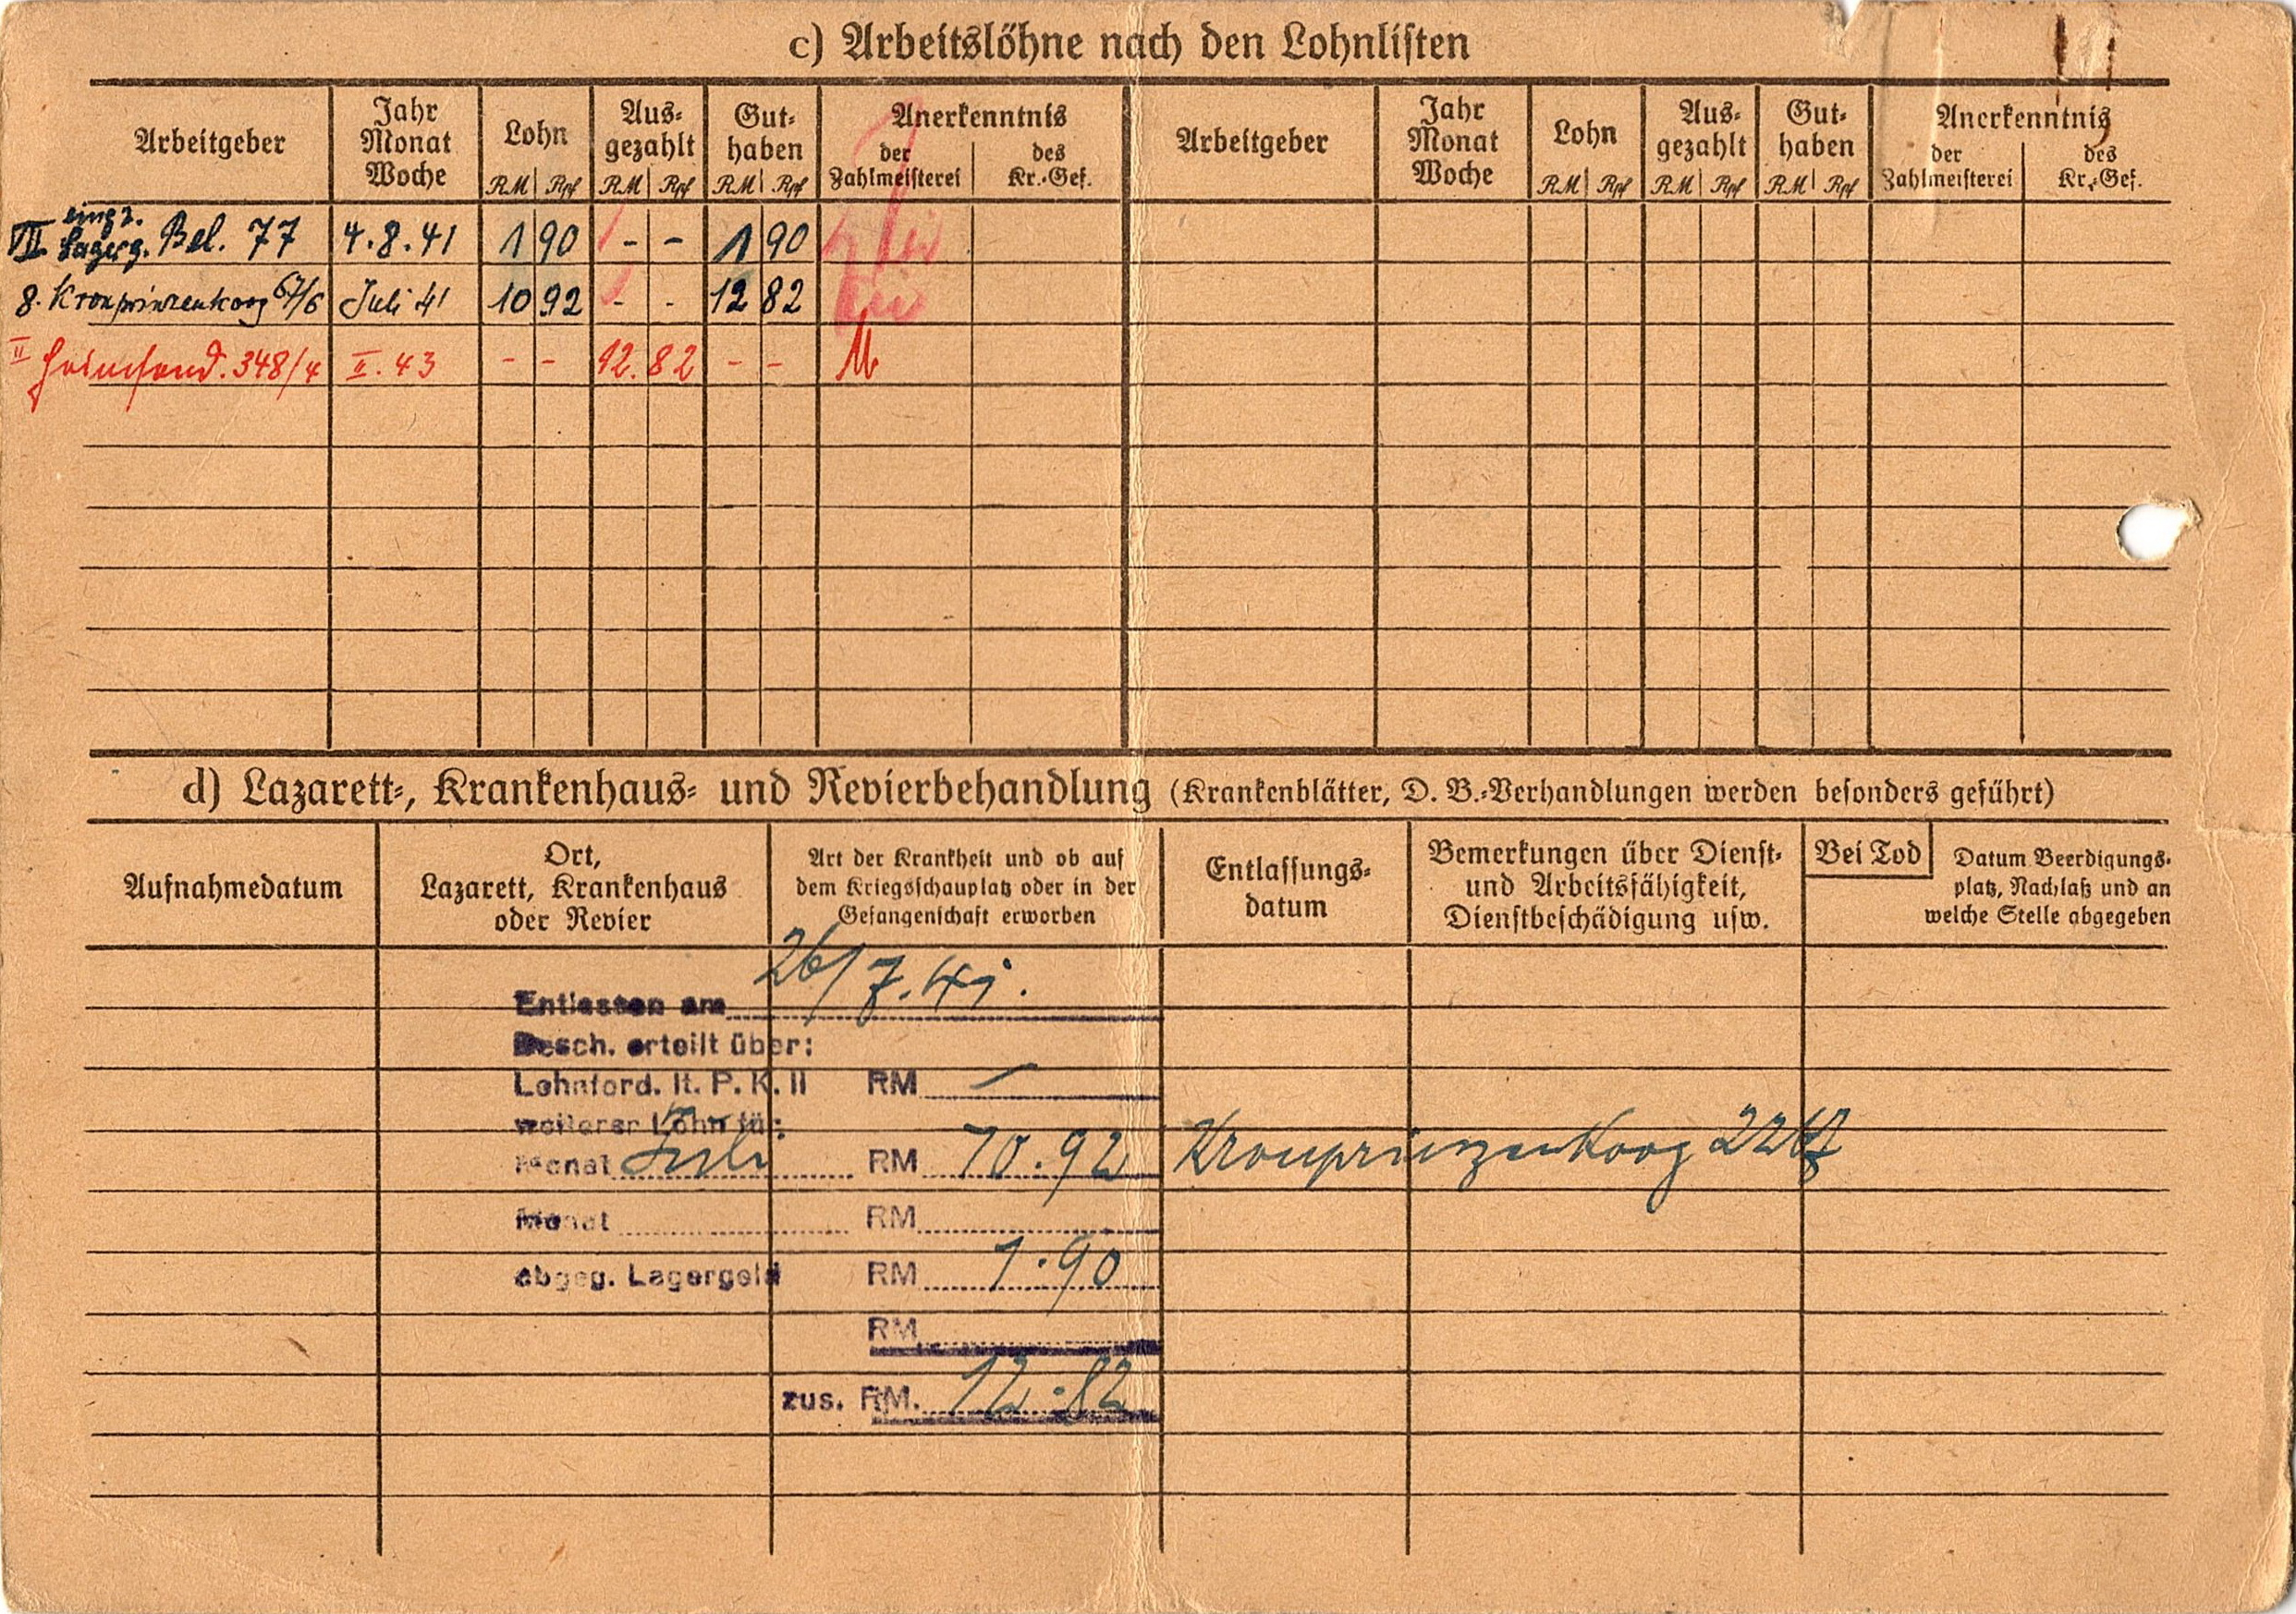 c) Arbeitslöhne nach den Lohnlisten
Arbeitgeber Jahr Monat Woche Lohn RM Rpf Aus- gezahlt RM Rpf Gut- haben RM Rpf Anerkenntnis der Zahlmeisterei des Kr.-Gef. Arbeitgeber Jahr Monat Woche Lohn RM Rpf Aus- gezahlt RM Rpf Gut- haben RM Rpf Anerkenntnis der Zahlmeisterei des Kr.-Gef.
VII eingz. Lagerg. Bel. 77 4.8.41 1 90 - - 1 90
8. Kronprinzenkoog 67/6 Juli 41 10 92 - - 12 82
II 348/4 II. 43 - - 12. 82 - -
d) Lazarett-, Krankenhaus- und Revierbehandlung (Krankenblätter, D. B.-Verhandlungen werden besonders geführt)
Aufnahmedatum Ort, Lazarett, Krankenhaus oder Revier Art der Krankheit und ob auf dem Kriegsschauplatz oder in der Gefangenschaft erworben Entlassungs- datum Bemerkungen über Dienst- und Arbeitsfähigkeit, Dienstbeschädigung usw. Bei Tod Datum Beerdigungs- platz, Nachlaß und an welche Stelle abgegeben
Entlassen am 26/7.41.
Besch. erteilt über:
Lohnford. lt. P. K. II RM —
weiterer Lohn für:
Monat Juli RM 10.92 Kronprinzenkoog
Monat RM
abgeg. Lagergeld RM 1.90
RM
zus. RM. 12.82